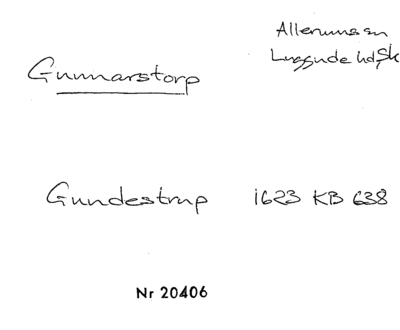 Allerums sn
Luggude hd, Sk
Gunnarstorp
Gundestrup 1623 KB 638
Nr 20406